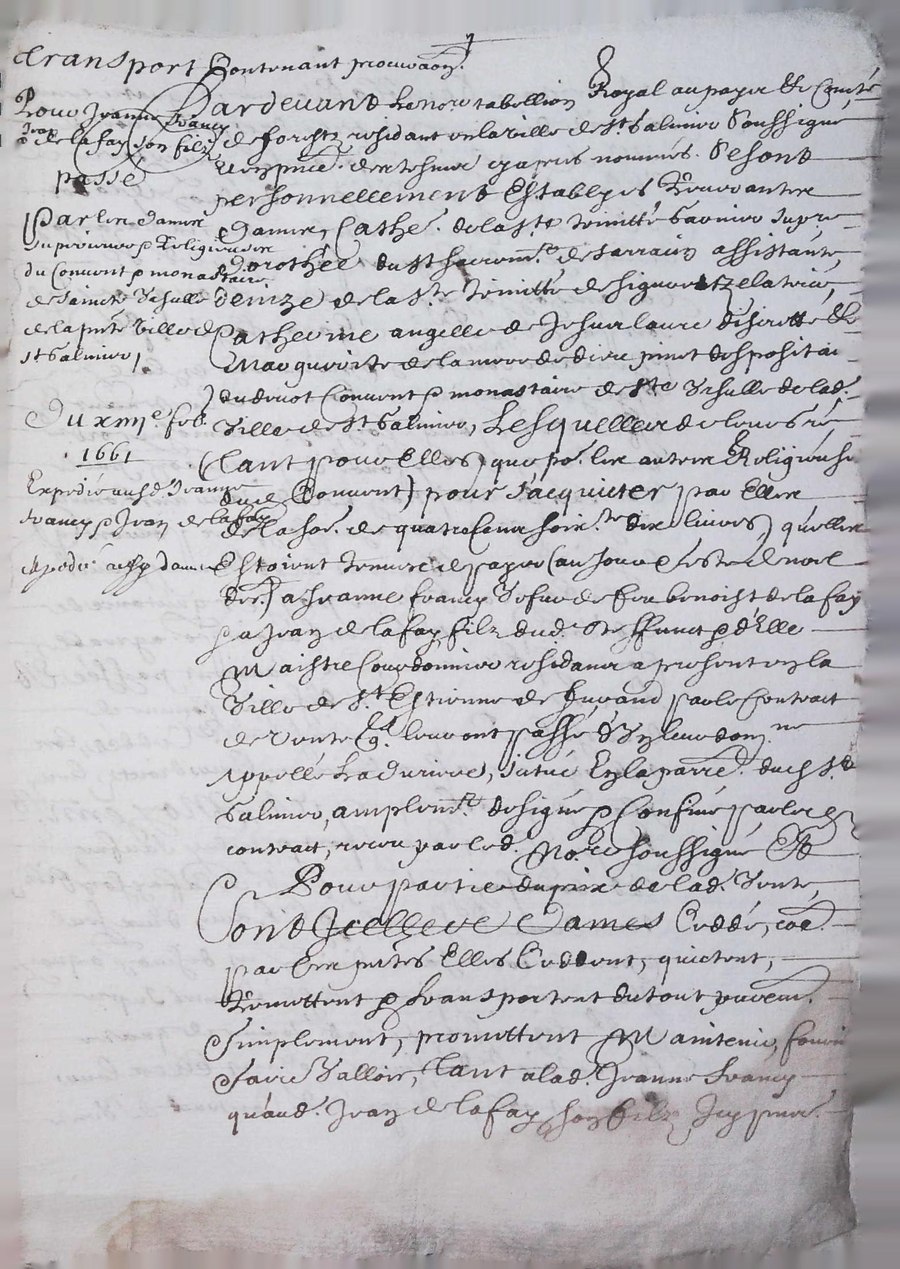 Transport Contenant
Pour Jeanne francy
& Jean de la fay son filz
passé
par les dames
superieure & Religieuses
du Convent & monastaire
de saincte Vrsulle
de la pnte Ville de
st Galmier,
Du xiiije feb.
1661
Expedié ausd. Jeanne
francy & Jean de la fay
expedié aussy dames
Pardevant le nore tabellion Royal au payx & Comté
de forestz residant en la ville de st Galmier soussigné
& en pnce. des tesmoins cy apres nommés. Se sont
personnellement Establyes Reverantes
dames, Cathe. de la ste trinitté Garnier supre
dorothée du st sacremt. de Sarrazin assistante
denize de la ste trinitté de zelatrice,
Catherine angelle de Jesus laure discrette &
Marguerite de la mere de dieu pinet despositai-
du devot Convent & monastaire de ste Vrsulle de lad.
Ville de st Galmier, Lesquelles de leurs gré
(tant pour Elles) que pr. les autres Religieuses
dud. Convent) pour s'acquicter par Elles
de la som. de quatre Cens soixte. dix livres, qu'elles
Estoient tenues de payer (au jour & feste de noel
der.) a Jeanne francy Vefve de feu benoist de la fay
& a Jean de la fay filz dud. deffunct & d'Elle
Maistre Courdonnier residans a present en la
Ville de st Estienne de furand par le Contract
de Vente qu. leur ont passé d'Vn leur dom.ne
appellé situé En la parre. dud. st
Galmier, amplemt. designé & Confiné par led.
contract, receu par led. No.re soussigné Et
Pour partie du prix de lad. Vente,
Ont Jcelles Dames Ceddé, coe.
par les pntes Elles Ceddent, quictent,
Remettent & transportent du tout puremt.
simplement, promettent Maintenir, fournir
faire Valloir, tant a lad. Jeanne francy
qu'aud. Jean de la fay son filz Jcy pnt.